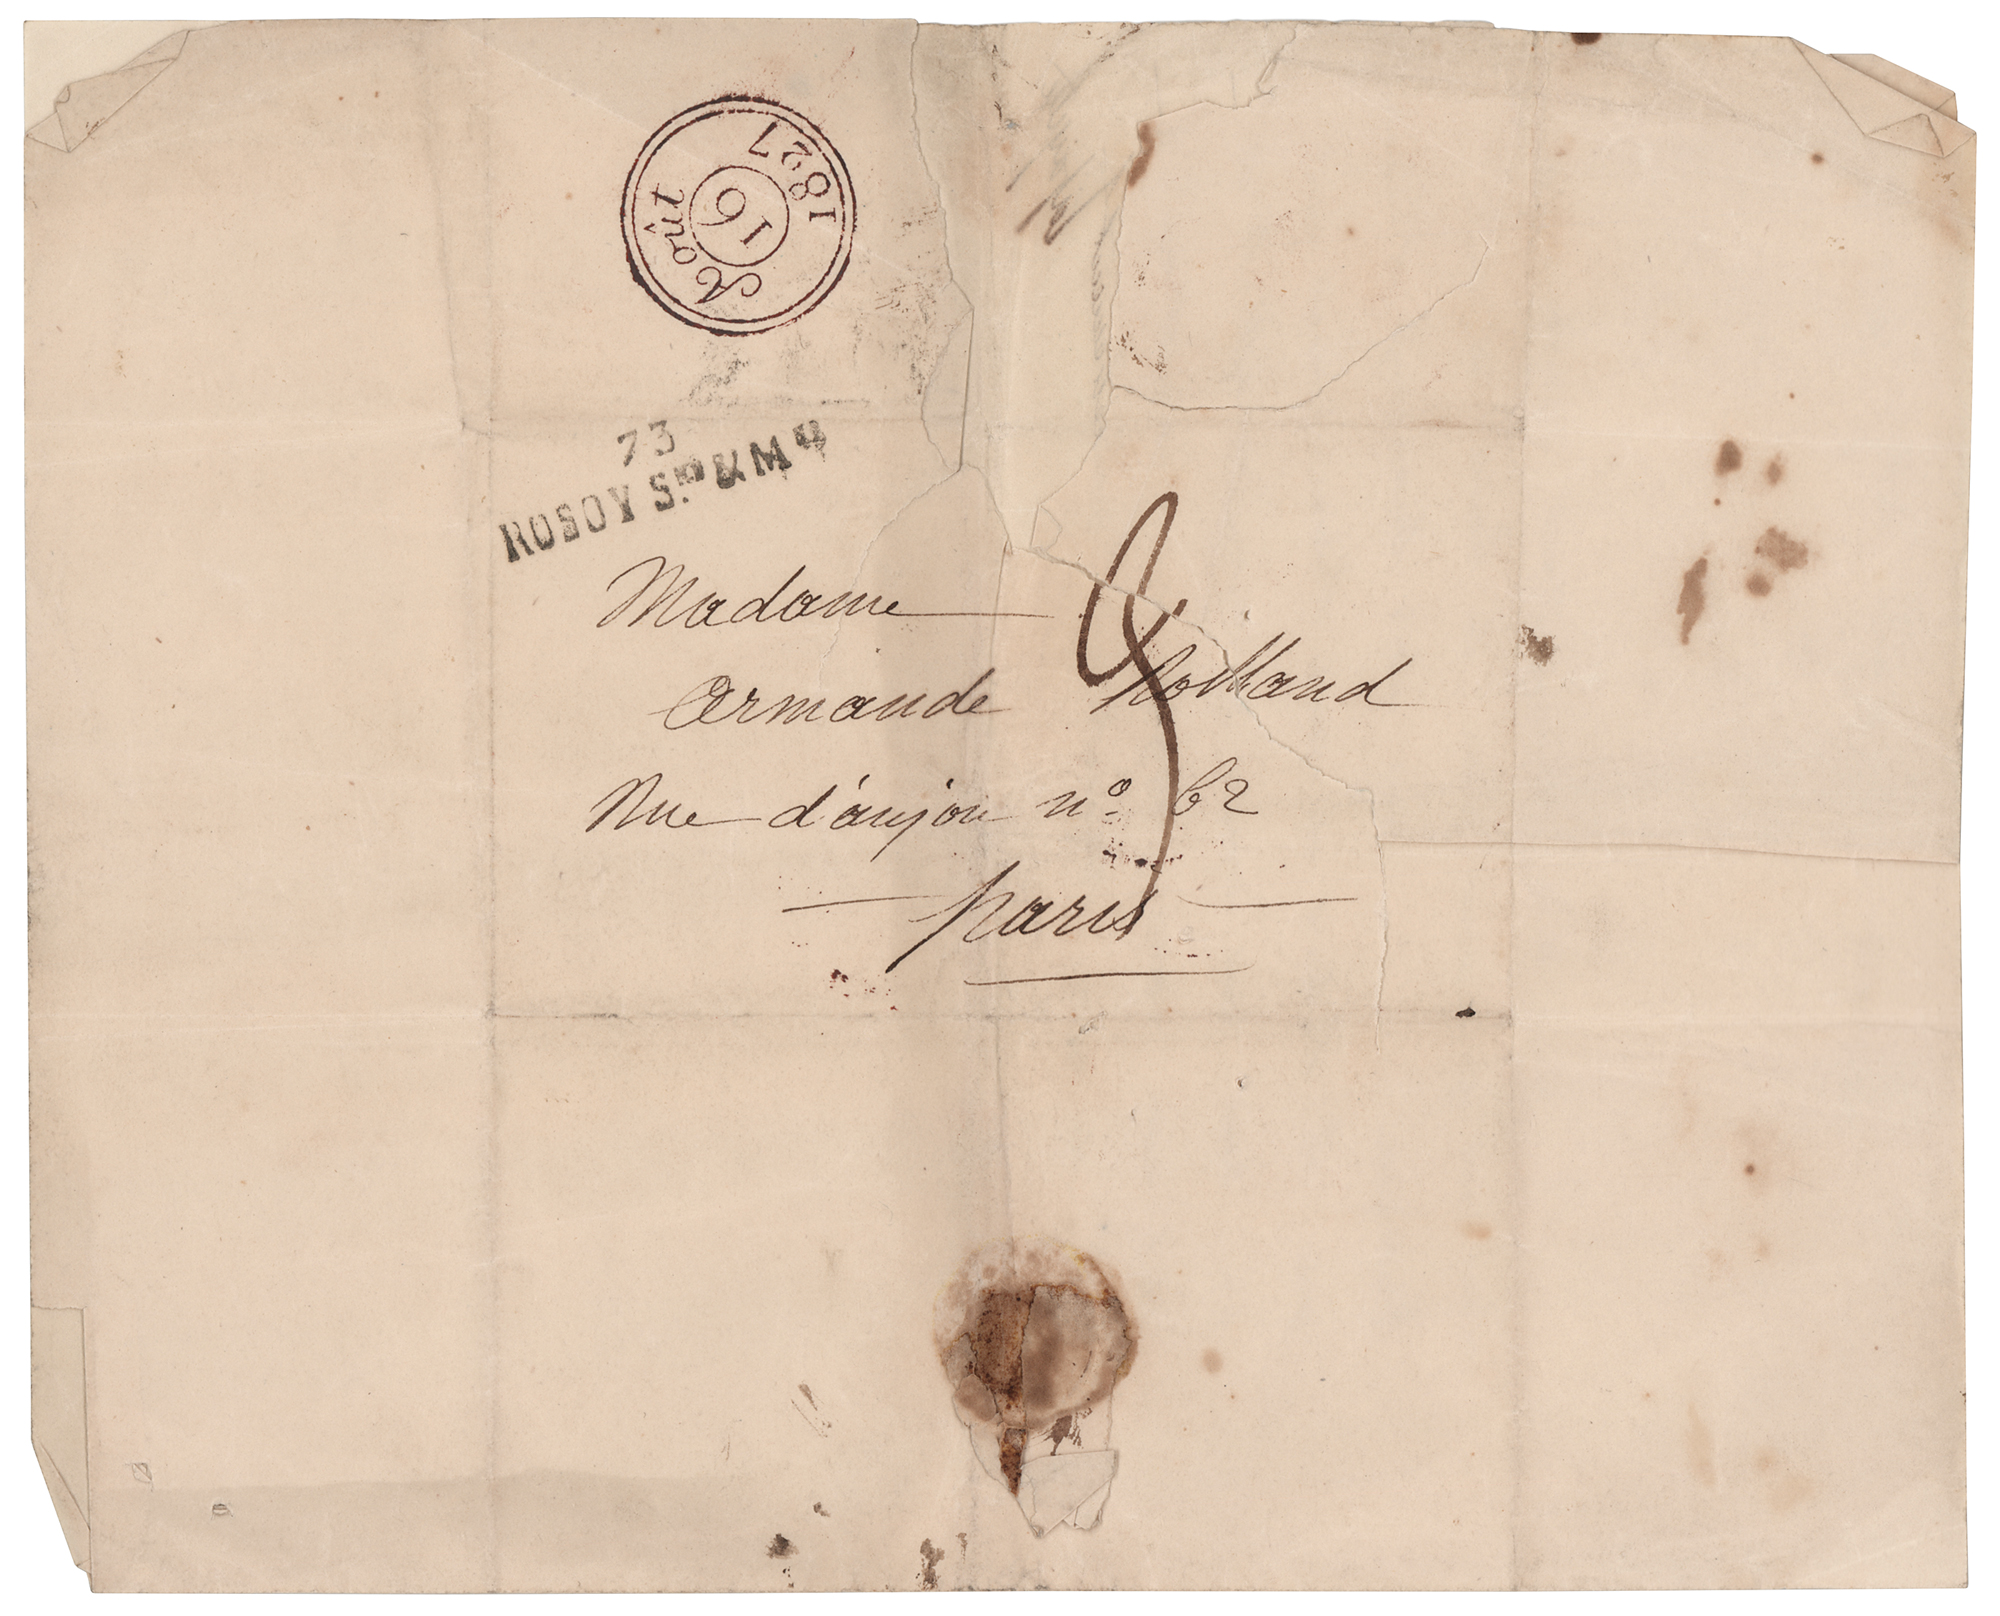 Août
16
1827
73
ROSOY S.^{IN} & M^{e}
Madame
Armande Rolland
Rue d'anjou n° 62
Paris
3